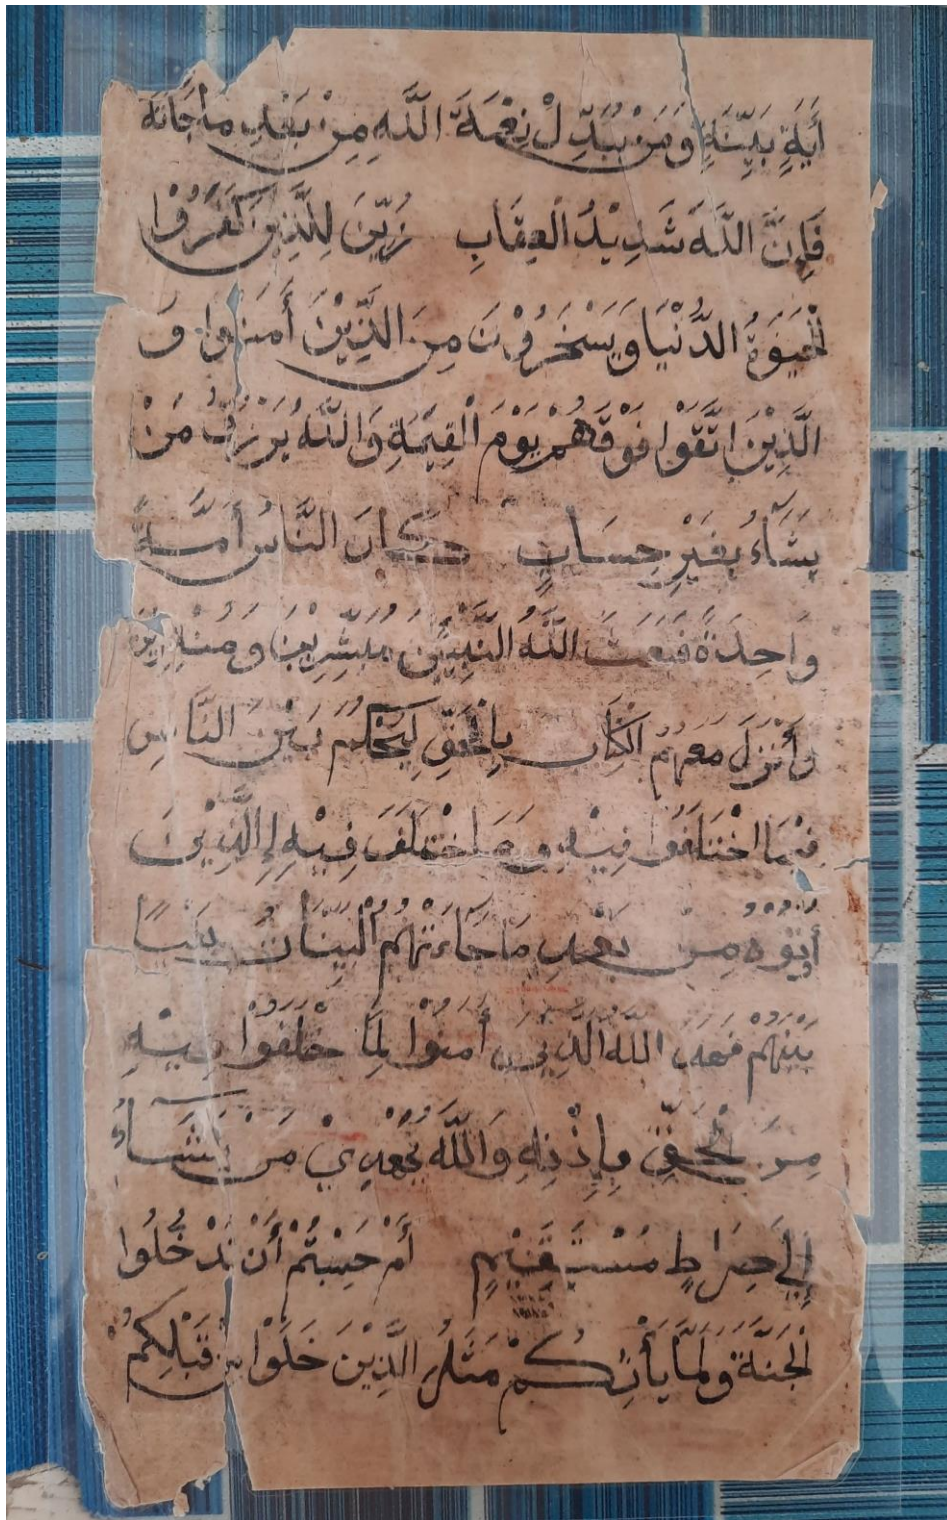 أَيَةٍ بَيِّنَةٍ وَمَنْ يُبَدِّلْ نِعْمَةَ اللَّهِ مِنْ بَعْدِ مَا جَاتَهُ
فَإِنَّ اللَّهَ شَدِيْدُ الْعِقَابِ زُيِّنَ لِلَّذِيْنَ كَفَرُوْا
لْحَيَوةُ الدُّنْيَا وَيَسْخَرُوْنَ مِنَ الَّذِيْنَ أَمَنُوا وَ
الَّذِيْنَ اتَّقَوْا فَوْقَهُمْ يَوْمَ الْقِيَمَةِ وَاللَّهُ يَرْزُقُ مَنْ
يَشَآءُ بِغَيْرِ حِسَابٍ كَانَ النَّاسُ أُمَّةً
وَاحِدَةً فَبَعَثَ اللَّهُ النَّبِيِّنَ مُبَشِّرِيْنَ وَمُنْذِرِيْنَ
وَأَنْزَلَ مَعَهُمُ الْكِتَابَ بِالْحَقِّ لِيَحْكُمَ بَيْنَ النَّاسِ
فِيْمَا اخْتَلَفُوْا فِيْهِ وَمَا اخْتَلَفَ فِيْهِ إِلَّا الَّذِيْنَ
أُوْتُوْهُ مِنْ بَعْدِ مَا جَاءَتْهُمُ الْبَيِّنَاتُ بَغْيًا
بَيْنَهُمْ فَهَدَى اللَّهُ الَّذِيْنَ أَمَنُوْا لِمَا خْتَلَفُوْا فِيْهِ
مِنَ لْحَقِّ بِإِذْنِهِ وَاللَّهُ يَهْدِيْ مَنْ يَشَآءُ
إِلَى صِرَاطٍ مُسْتَقَيْمٍ أَمْ حَسِبْتُمْ أَنْ تَدْخُلُوا
لْجَنَّةَ وَلَمَّا يَأْتِكُمْ مَثَلُ الَّذِيْنَ خَلَوْا مِنْ قَبْلِكُمْ